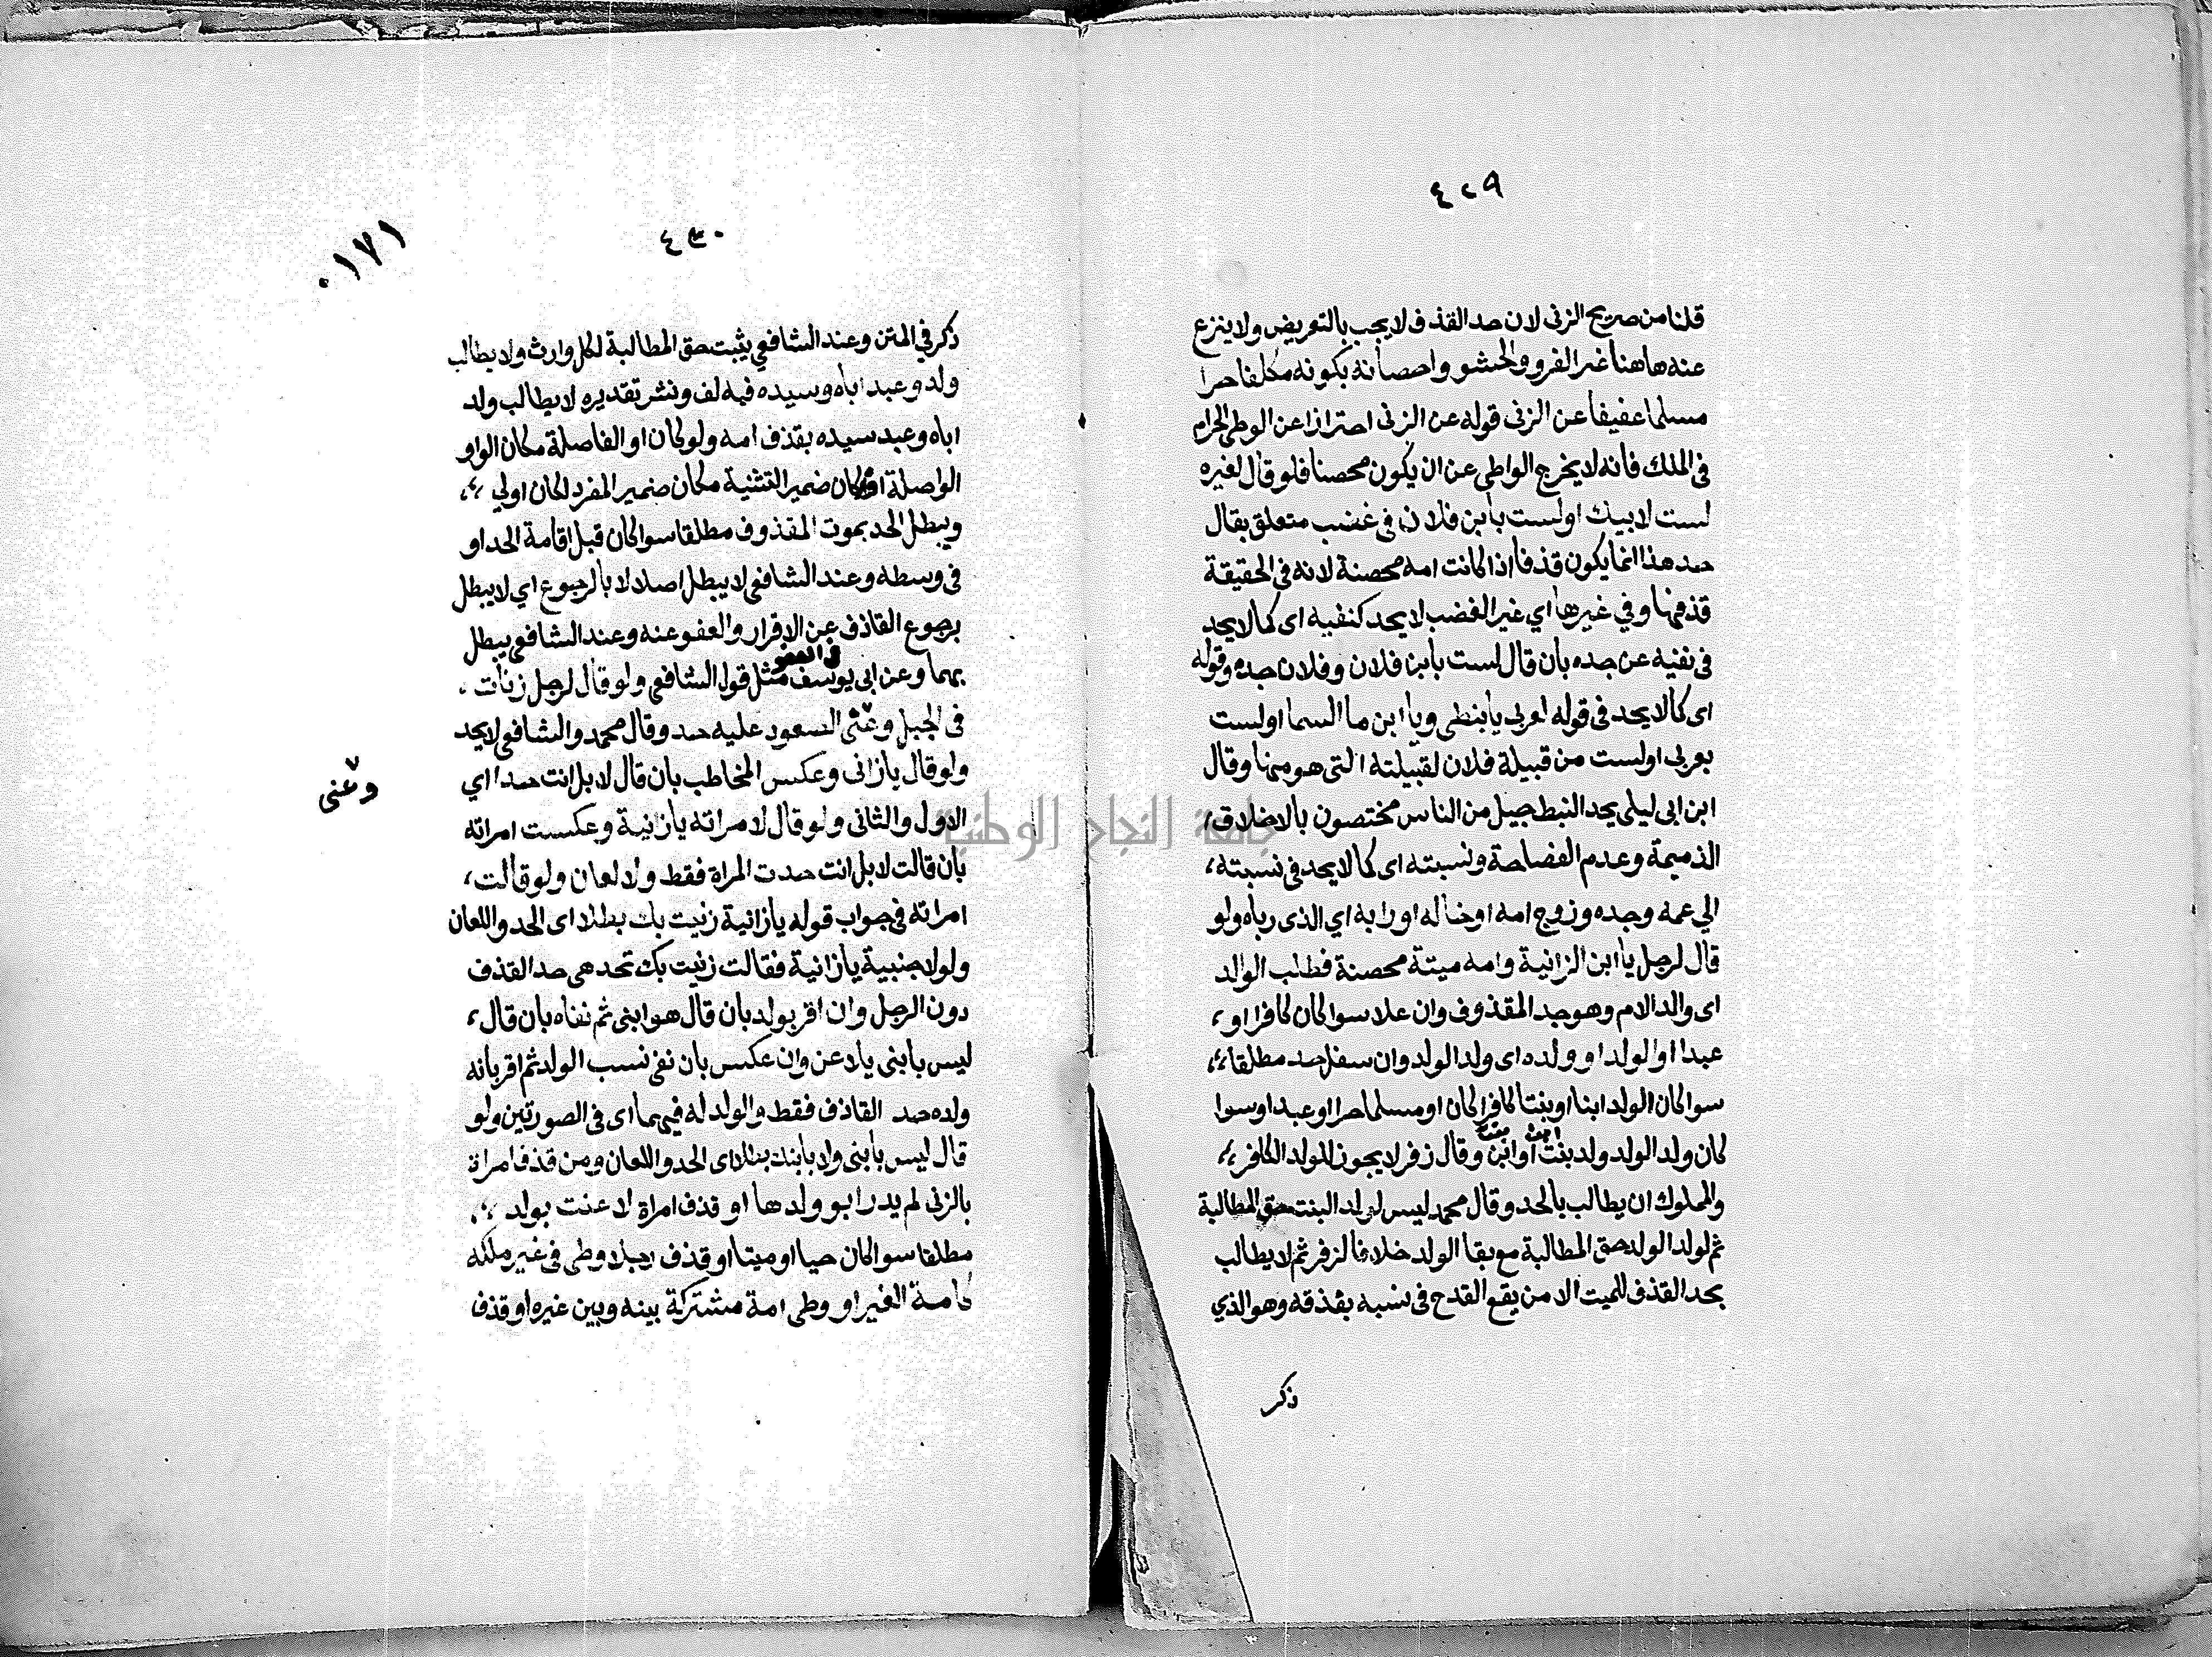 ٤٢٩
قلنا من صريح الزنى لان حد القذف لا يجب بالتعريض ولا ينزع
عنه هاهنا غير الفرو والحشو واحصانه بكونه مكلفا حرا
مسلما عفيفا عن الزنى قوله عن الزنى احترازا عن الوطى الحرام
فى الملك فانه لا يخرج الواطى عن ان يكون محصنا فلو قال لغيره
لست لابيك او لست بابن فلان فى غضب متعلق بقال
حد هذا انما يكون قذفا اذا كانت امه محصنة لانه فى الحقيقة
قذفها وفي غيرها اي غير الغضب لا يحد كنفيه اى كما لا يحد
فى نفيه عن جده بان قال لست بابن فلان وفلان جده وقوله
اى كما لا يحد فى قوله لعربى يا نبطى ويا ابن ما السما او لست
بعربى او لست من قبيلة فلان لقبيلته التى هو منها وقال
ابن ابى ليلى يحد النبط جيل من الناس مختصون بالاخلاق
الذميمة وعدم الفصاحة ونسبته اى كما لا يحد فى نسبته
الي عمه وجده وزوج امه او خاله او رابه اي الذى رباه ولو
قال لرجل يا ابن الزانية وامه ميتة محصنة فطلب الوالد
اى والد الام وهو جد المقذوف وان علا سوا كان كافرا او
عبدا او الولد او ولده اى ولد الولد وان سفل حد مطلقا
سوا كان الولد ابنا او بنتا كافرا كان او مسلما حرا او عبدا وسوا
كان ولد الولد ولد بنت او ابن وقال زفر لا يجوز للولد الكافر
والمملوك ان يطالب بالحد وقال محمد ليس لولد البنت حق المطالبة
ثم لولد الولد حق المطالبة مع بقا الولد خلافا لزفر ثم لا يطالب
بحد القذف للميت الا من يقع القدح فى نسبه بقذفه وهو الذي
ذكر
٤٣٠
٠١٧١
ذكر في المتن وعند الشافعي يثبت حق المطالبة لكل وارث ولا يطالب
ولد وعبد اباه وسيده فيه لف ونشر تقديره لا يطالب ولد
اباه وعبد سيده بقذف امه ولو كان او الفاصلة مكان الواو
الواصلة او كان ضمير التثنية مكان ضمير المفرد لكان اولي
ويبطل الحد بموت المقذوف مطلقا سوا كان قبل اقامة الحد او
فى وسطه وعند الشافعى لا يبطل اصلا لا بالرجوع اي لا يبطل
برجوع القاذف عن الاقرار والعفو عنه وعند الشافعى يبطل
فى العفو
بهما وعن ابى يوسف مثل قول الشافعى ولو قال لرجل زنأت
فى الجبل وعنى الصعود عليه حد وقال محمد والشافعى لا يحد
وعنى
ولو قال يا زانى وعكس المخاطب بان قال لا بل انت حدا اي
الاول والثانى ولو قال لامراته يا زانية وعكست امراته
بان قالت لا بل انت حدت المراة فقط ولا لعان ولو قالت
امراته فى جواب قوله يا زانية زنيت بك بطلا اى الحد واللعان
ولو لاجنبية يا زانية فقالت زنيت بك تحد هى حد القذف
دون الرجل وان اقر بولد بان قال هو ابنى ثم نفاه بان قال
ليس بابنى يلاعن وان عكس بان نفى نسب الولد ثم اقر بانه
ولده حد القاذف فقط والولد له فيهما اى فى الصورتين ولو
قال ليس بابنى ولا بابنك بطلا اى الحد واللعان ومن قذف امراة
بالزنى لم يدر ابو ولدها او قذف امراة لاعنت بولد
مطلقا سوا كان حيا او ميتا او قذف رجلا وطى فى غير ملكه
كامة الغير او وطى امة مشتركة بينه وبين غيره او قذف
جامعة النجاح الوطنية